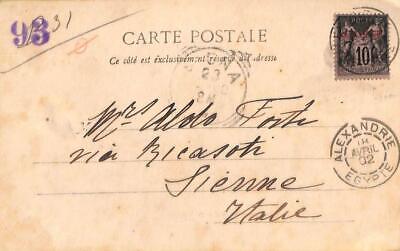 93
31
CARTE POSTALE
Ce côté est exclusivement réservé à l'adresse
23
10
Mrs Aldo Forti
via Ricasoli
Sienne
Italie
ALEXANDRIE
AVRIL
02
EGYPTE